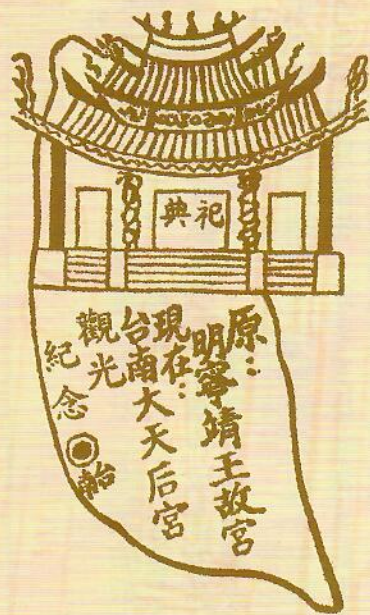 祀典
原：
明寧靖王故宮
現在：
台南大天后宮
觀光
紀念